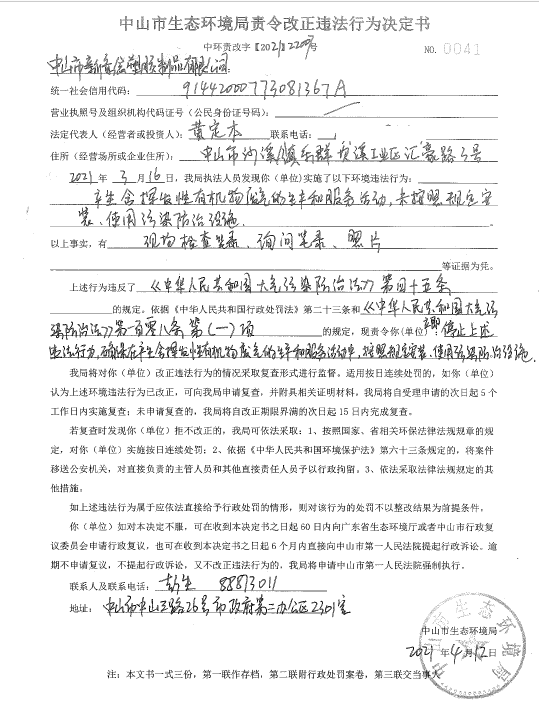 中山市生态环境局责令改正违法行为决定书
中环责改字【2021】2209号
NO.0041
中山市新亮金塑胶制品有限公司:
统一社会信用代码: 91442000773081367A
营业执照号及组织机构代码证号(公民身份证号码):
法定代表人(经营者或投资人): 黄定本 联系电话:
住所(经营场所或企业住所): 中山市沙溪镇乐群 工业区汇豪路 号
2021 年 3 月 16 日,我局执法人员发现你(单位)实施了以下环境违法行为:
产生含挥发性有机物废气的生产和服务活动,未按照规定安
装、使用污染防治设施.
以上事实,有 现场检查笔录、询问笔录、照片
等证据为凭。
上述行为违反了《中华人民共和国大气污染防治法》第四十五条
的规定。依据《中华人民共和国行政处罚法》第二十三条和《中华人民共和国大气污
染防治法》第一百零八条第(一)项 的规定,现责令你(单位) 停止上述
违法行为,确保在产生含挥发性有机物废气的生产和服务活动中,按照规定安装、使用污染防治设施.
我局将对你(单位)改正违法行为的情况采取复查形式进行监督。适用按日连续处罚的,如你(单位)
认为上述环境违法行为已改正,可向我局申请复查,并附具相关证明材料,我局将自受理申请的次日起 5 个
工作日内实施复查;未申请复查的,我局将自改正期限届满的次日起 15 日内完成复查。
若复查时发现你(单位)拒不改正的,我局可依法采取:1、按照国家、省相关环保法律法规规章的规
定,对你(单位)实施按日连续处罚;2、依据《中华人民共和国环境保护法》第六十三条规定的,将案件
移送公安机关,对直接负责的主管人员和其他直接责任人员予以行政拘留。3、依法采取法律法规规定的其
他措施。
如上述违法行为属于应依法直接给予行政处罚的情形,则对该行为的处罚不以整改结果为前提条件。
你(单位)如对本决定不服,可在收到本决定书之日起 60 日内向广东省生态环境厅或者中山市行政复
议委员会申请行政复议,也可在收到本决定书之日起 6 个月内直接向中山市第一人民法院提起行政诉讼。逾
期不申请复议,不提起行政诉讼,又不改正违法行为的。我局将申请中山市第一人民法院强制执行。
联系人及联系电话: 彭生 88873011
地址: 中山市中山三路26号市政府第二办公区2301室
中山市生态环境局
2021 年 4 月 12 日
注:本文书一式三份,第一联作存档,第二联附行政处罚案卷,第三联交当事人